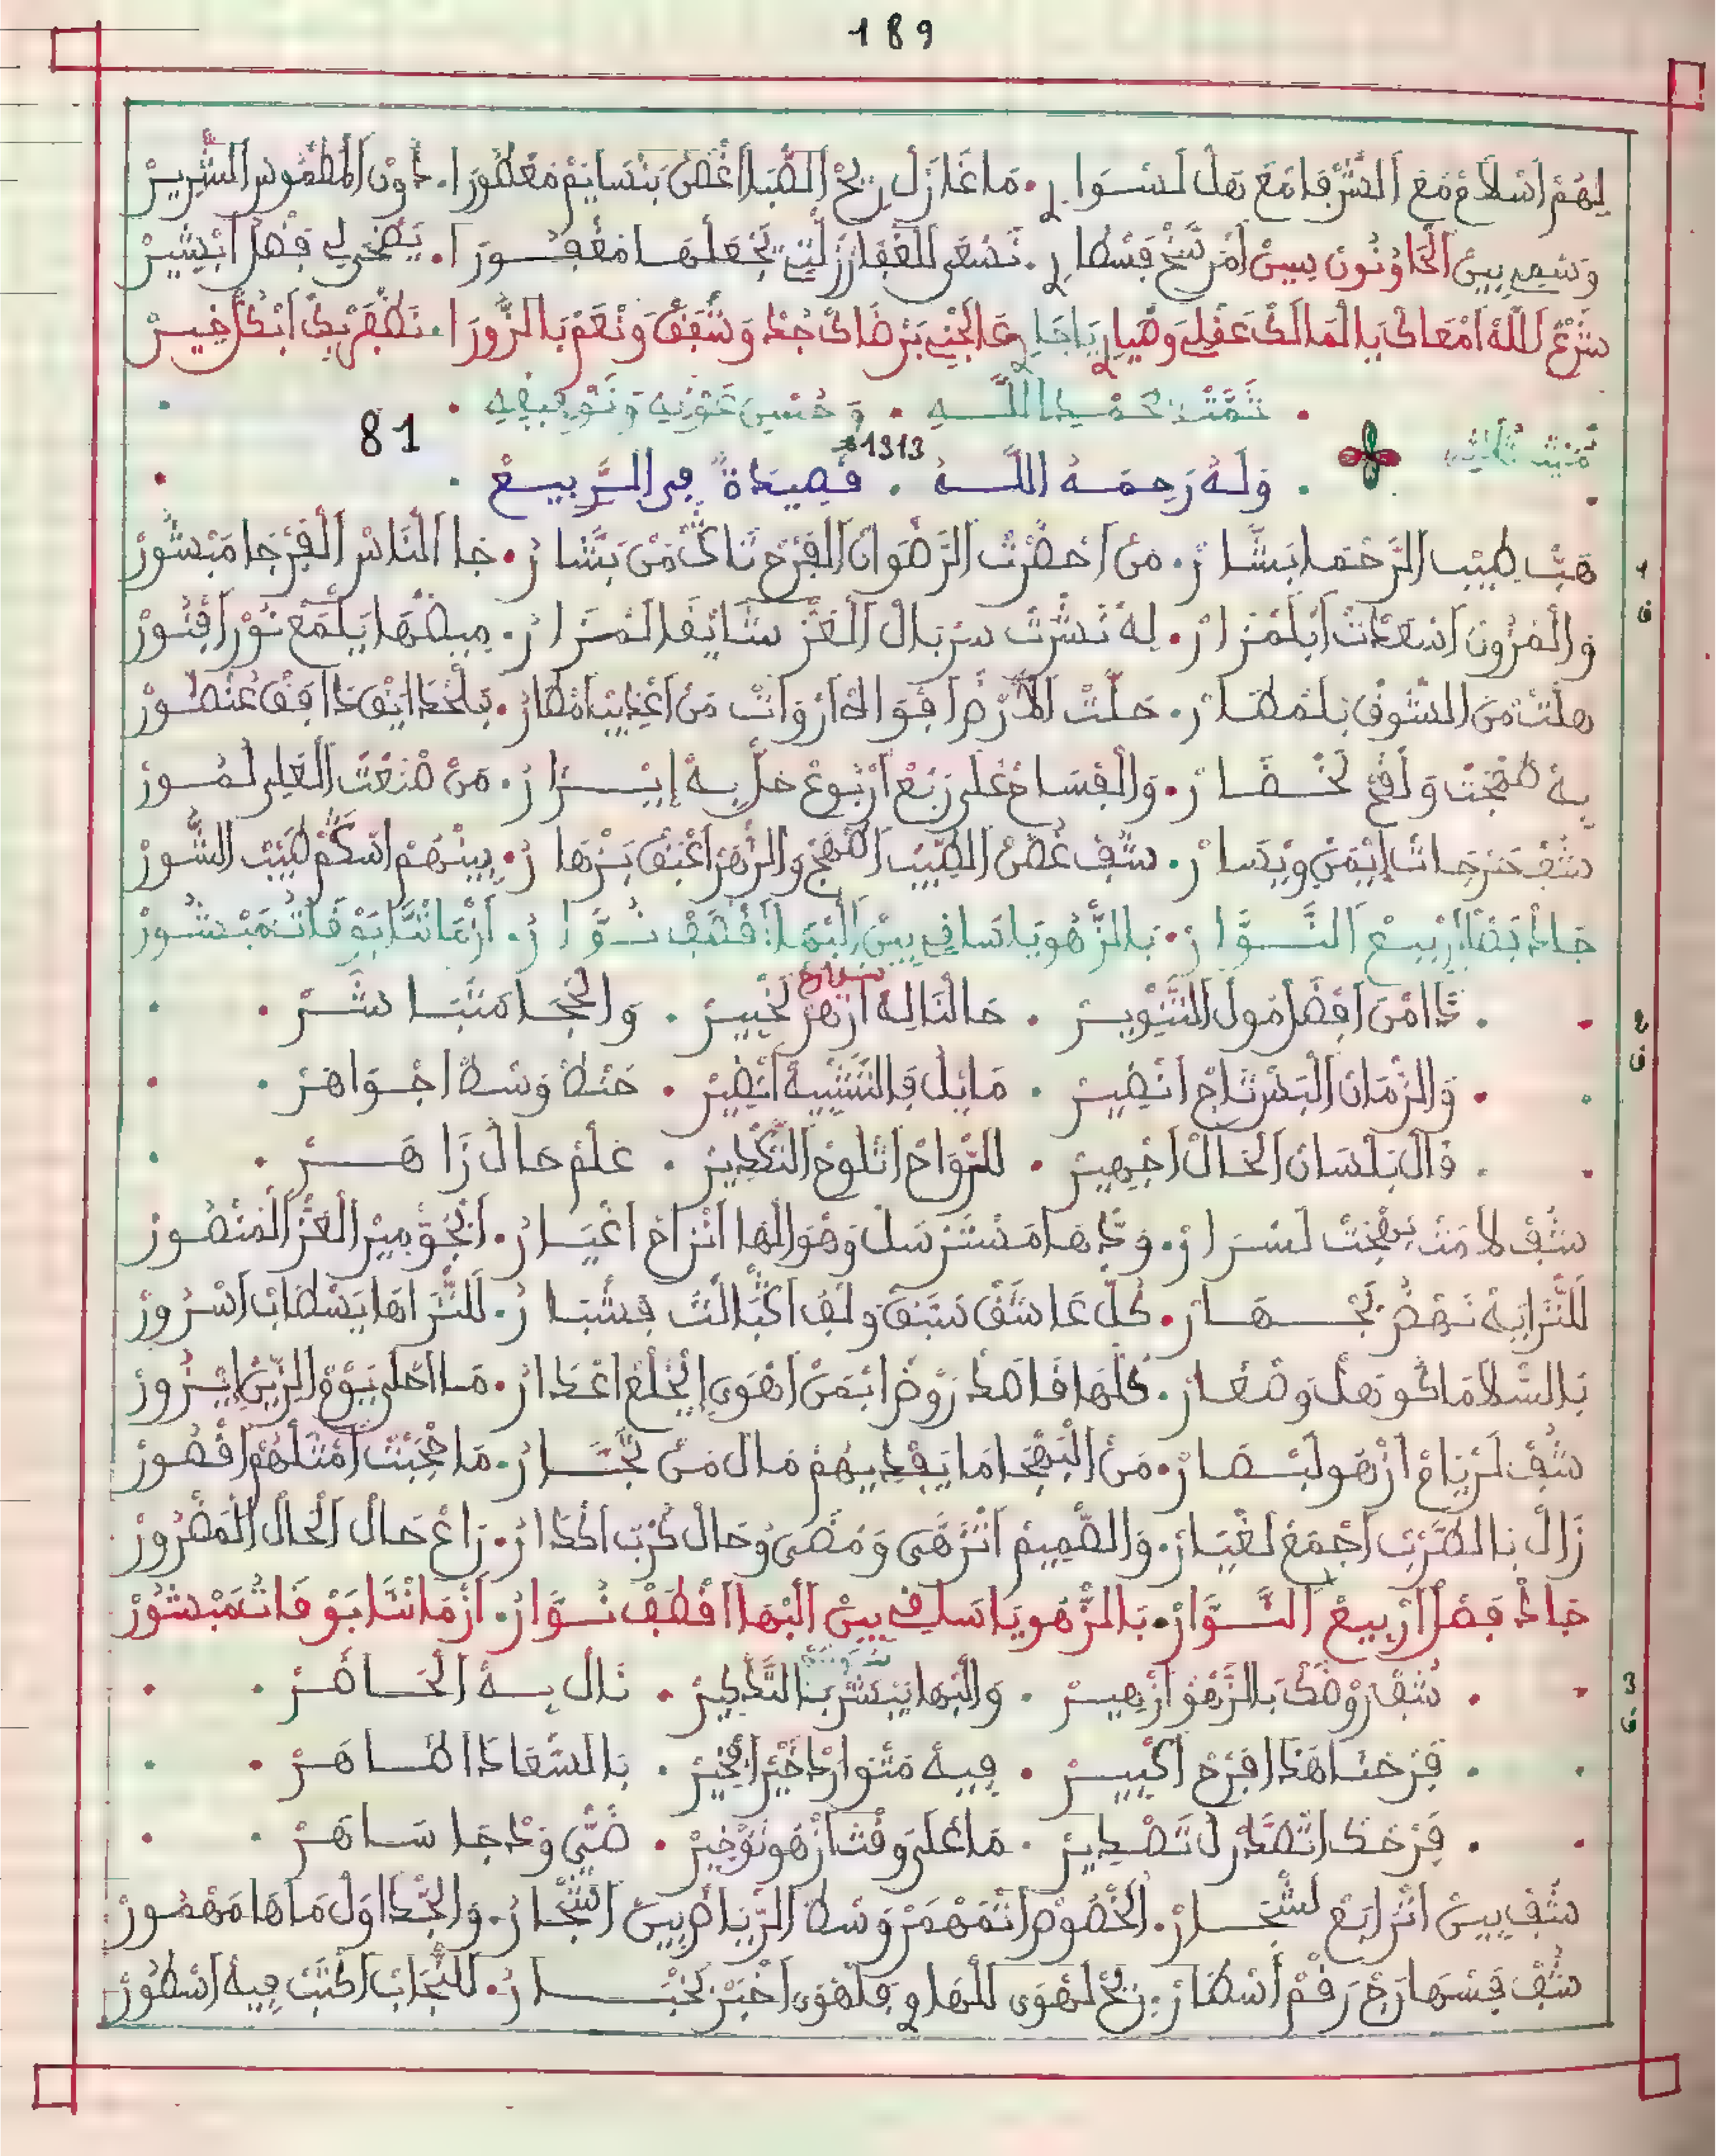 189
ليهم اسلام مع الشرفا مع هل لسوار. ما غازل ريح الصبا اغصن بنسايم معطورا. دون المطموس الشرير
وسمي بين الحا ونون سين أمر سخ فسطار. نسعى للغفار زلتي يجعلها مغفورا. يضحى لي فضل ابشير
شرع لله امعاك يا المالك عقلي وضيار يا جار عالجني برضاك جد وشفق ونعم بالزورا. نظفر بك ابكل خير
تمت بحمد الله . وحسن عونه وتوفيقه
81
1313
وله رحمه الله . قصيدة في الربيع
1 ف
هب طيب الرحما بشار. من احضرت الرضوان الفرح تاك من بشار. جا الناس الفرجا مبشور
والمزون اسعدات ابلمزار. له نشرت سربال العز سايف المزار. ميضها يلمع نور افنور
هلت من الشوف بلمطار. حلت الارض افواه اروات من اغذيب امطار. بلخدايق ذافق عنصور
به ضحت ولقح لخضار. والفساح على ربع اربوع حل به إيزار. من صنعت العلي لمور
شف حنرجات ايمن ويسار. شف غصن الطيب اضهج والزهر اعبق بزهار. بينهم اسكم طيب الشور
جاد بفضل اربيع النوار. بالزهو يا سافي بين البها اقطف نوار. ازماننا بوفات مبشور
2 ف
دا امن افضل مول التنوير . حالنا له ازهر لخيير . والحجا منبا شر
شارح
والزمان البدر تاج انضير . مايل فالتشبيه انضير . حنط وسط اجواهر
قال بلسان الحال اجهير . للرواح اتلوح التكدير . علم حال زاهر
شف لامت بهجت لسرار. وداها مسترسل وهوالها انزاح اغيار. انجو مير العز المنصور
للنزايه نهض بجهار. كل عاشق سبق ولف اكبالت فشبار. للنزاها يسطاب اسرور
بالسلاما كو هل وضغار. كلها قاصد روض ابمن اهوى ايخلع اعدار. ما احلى يوم الزين ايزور
شف لرياح ازهو لبصار. من البهجا ما يفديهم مال من لتجار. ما حجبت امثلهم اقصور
زال بالطرب اجمع لغيار. والضميم انزهى ومضى وحال كرب اكدار. راع حال الحال المضرور
جاد فضل اربيع النوار. بالزهو يا سافي بين البها اقطف نوار. ازماننا بوفات مبشور
3 ف
شف روضك بالزهو ازهير . والبها يبشر بالتدكير . نال به الحاضر
فرحنا هذا فرح اكبير . فيه متوارد خير افخير . بالسعادا طاهر
فرحك اتصدر ل تصدير . ما على وقت ازهو توخير . ضي ودجا ساهر
شف بين اترابع لشجار. الخصوص اتمهمر وسط الرياض بين اشجار. والجداول ماها مهمور
شف فسهارج رقم اسطار. ريح لهوى للها وفلهوى اخبر لخبار. للنجاب اكتب فيه اسطور